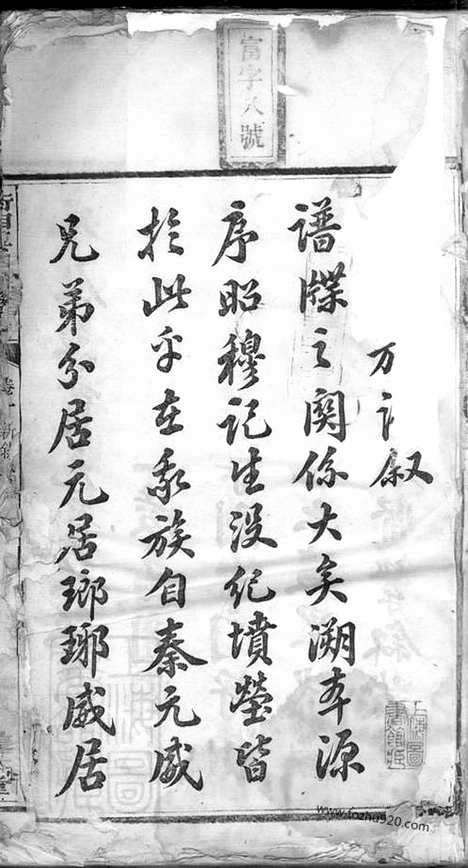 富字八號
叙
譜牒之関係大矣溯本源
序昭穆記生没紀墳塋皆
扵此乎在我族自秦元威
兄弟分居元居瑯琊威居
上海圖
書館藏
www.fozhu920.com